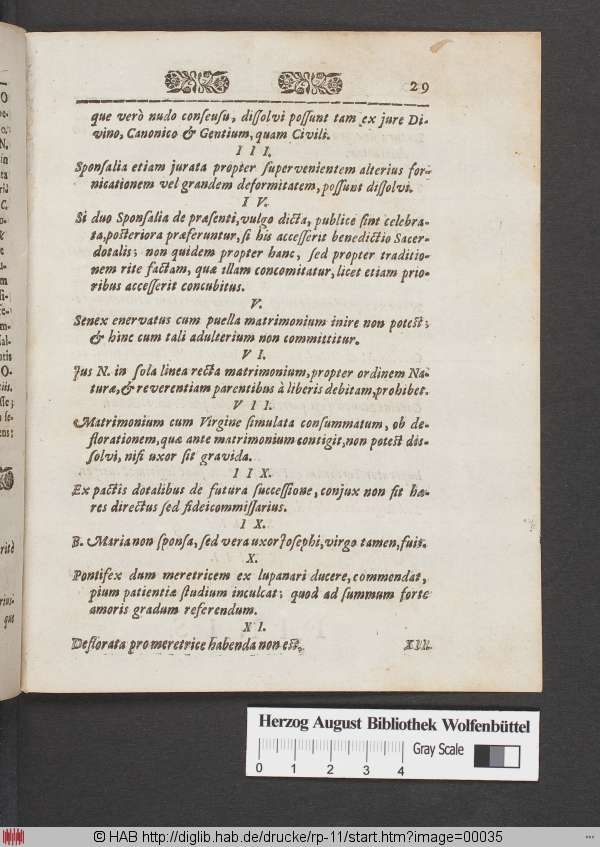 29
que verò nudo consensu, dissolvi possunt tam ex jure Di-
vino, Canonico & Gentium, quam Civili.
III.
Sponsalia etiam jurata propter supervenientem alterius for-
nicationem vel grandem deformitatem, possunt dissolvi.
IV.
Si duo Sponsalia de præsenti, vulgo dicta, publice sint celebra-
ta, posteriora præferuntur, si his accesserit benedictio Sacer-
dotalis; non quidem propter hanc, sed propter traditio-
nem rite factam, quæ illam concomitatur, licet etiam prio-
ribus accesserit concubitus.
V.
Senex enervatus cum puella matrimonium inire non potest;
& hinc cum tali adulterium non committitur.
VI.
Jus N. in sola linea recta matrimonium, propter ordinem Na-
turæ, & reverentiam parentibus à liberis debitam, prohibet.
VII.
Matrimonium cum Virgine simulata consummatum, ob de-
florationem, quæ ante matrimonium contigit, non potest dis-
solvi, nisi uxor sit gravida.
IIX.
Ex pactis dotalibus de futura successione, conjux non fit hæ-
res directus sed fideicommissarius.
IX.
B. Maria non sponsa, sed vera uxor Josephi, virgo tamen, fuit.
X.
Pontifex dum meretricem ex lupanari ducere, commendat,
pium patientiæ studium inculcat; quod ad summum forte
amoris gradum referendum.
XI.
Deflorata pro meretrice habenda non est.
XII.
Herzog August Bibliothek Wolfenbüttel
Gray Scale
0 1 2 3 4
© HAB http://diglib.hab.de/drucke/rp-11/start.htm?image=00035